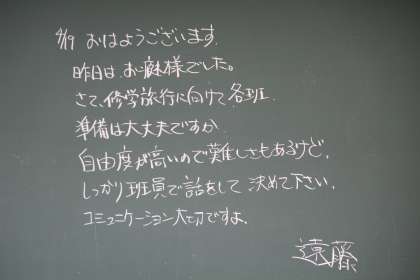 9/19 おはようございます.
昨日は、お疲れ様でした。
さて、修学旅行に向けて各班.
準備は大丈夫ですか.
自由度が高いので難しさもあるけど,
しっかり班員で話をして決めて下さい.
コミュニケーション大切ですよ.
遠藤